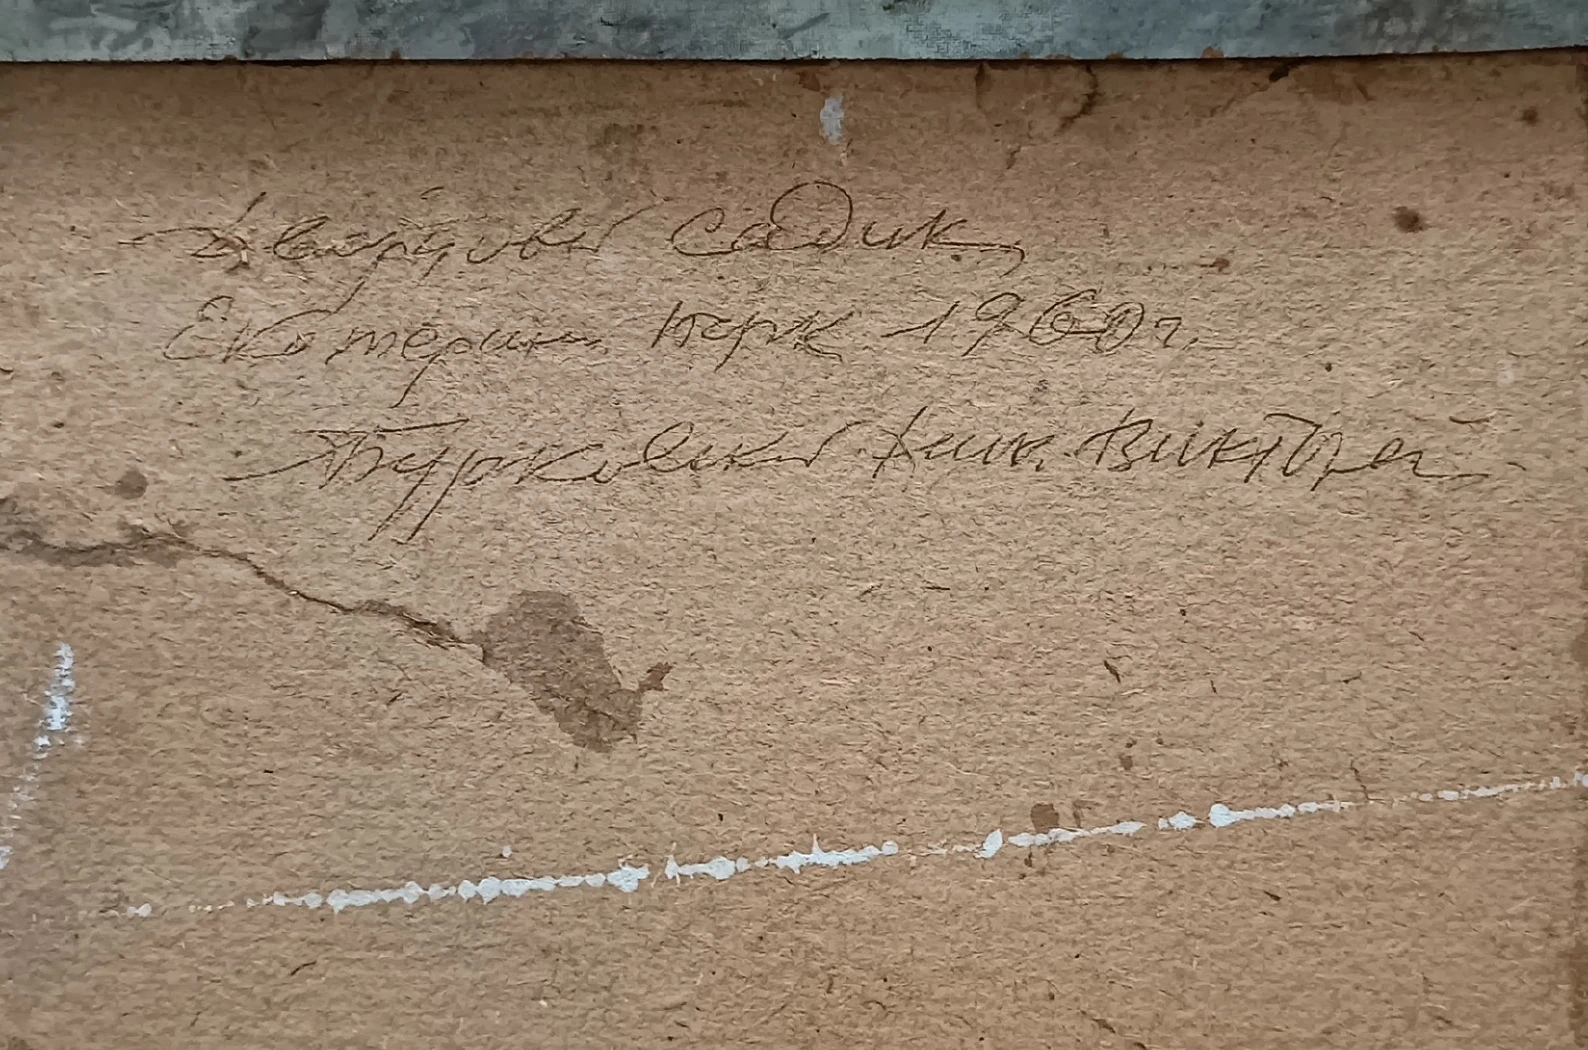 Дворцовый садик,
Екатерин. парк 1960 г.
Турковский Виктор